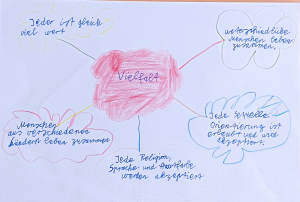 Jeder ist gleich
viel wert
unterschiedliche
Menschen leben
zusammen.
Vielfalt
Menschen
aus verschiedenen
Ländern leben zusammen
Jede Sexuelle
Orientierung ist
erlaubt und wird
akzeptiert.
Jede Religion,
Sprache und Hautfarbe
werden akzeptiert